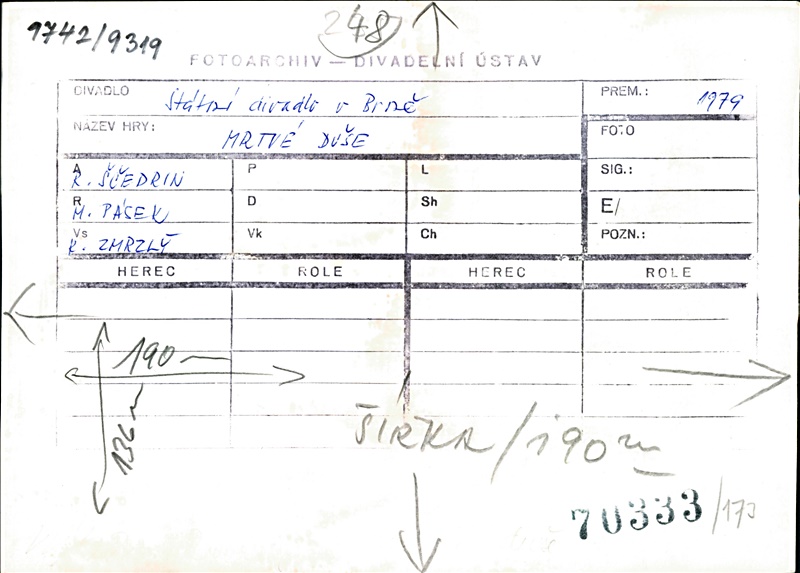 9742/9319
248
FOTOARCHIV — DIVADELNÍ ÚSTAV
DIVADLO Státní divadlo v Brně
PREM.: 1979
NÁZEV HRY: MRTVÉ DUŠE
FOTO
A R. ŠČEDRIN P L SIG.:
R M. PÁSEK D Sh E/
Vs K. ZMRZLÝ Vk Ch POZN.:
HEREC ROLE HEREC ROLE
190
136
ŠÍŘKA / 190
70333/173